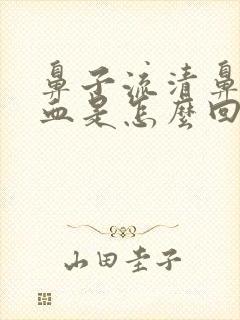 鼻子流清鼻
血是怎麼回
山田圭子